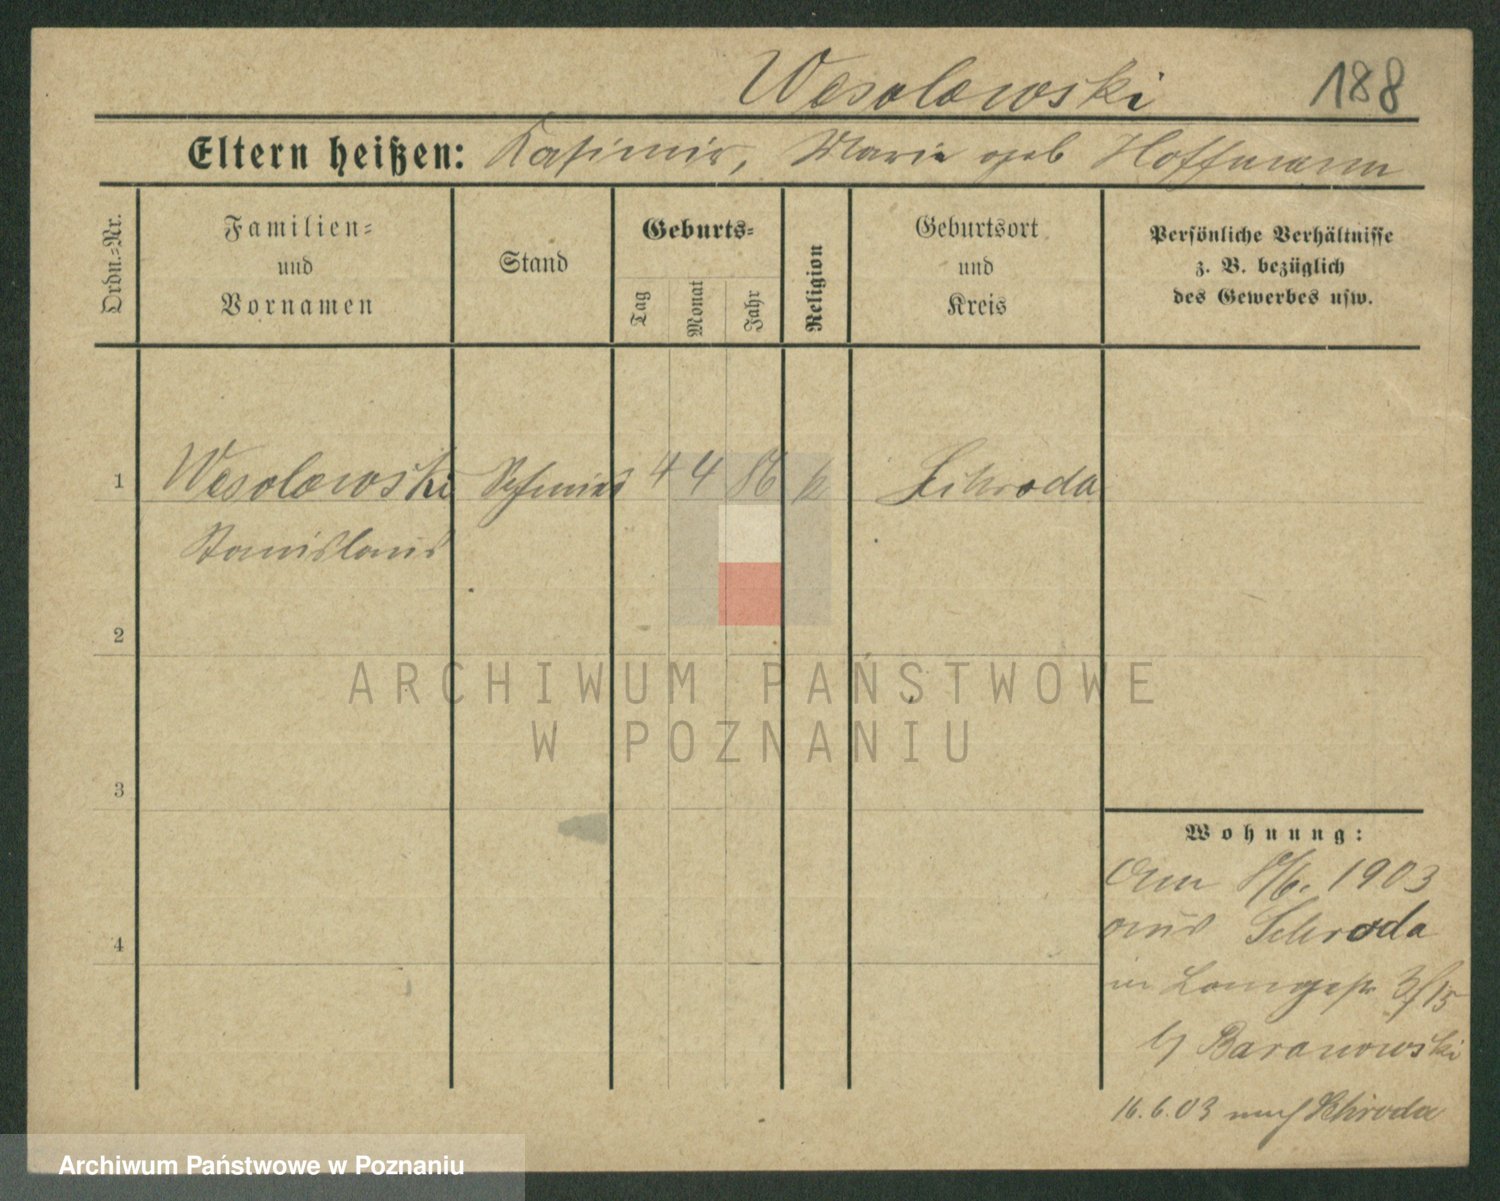 Wesolowski 188
Eltern heißen: Kasimir, Marie geb Hoffmann
Ordn.=Nr.
Familien=
und
Vornamen
Stand
Geburts=
Tag
Monat
Jahr
Religion
Geburtsort
und
Kreis
Persönliche Verhältnisse
z. B. bezüglich
des Gewerbes usw.
1 Wesolowski Schmied 4 4 86 k Schroda
Stanislaus
2
3
4
ARCHIWUM PAŃSTWOWE
W POZNANIU
Wohnung:
Am 8/6. 1903
aus Schroda
in Langestr 3/15
b/ Baranowski
16.6.03 nach Schroda
Archiwum Państwowe w Poznaniu